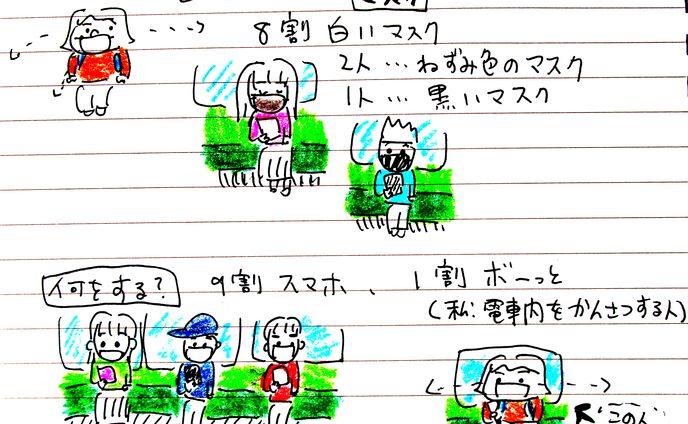 8割 白いマスク
2人…ねずみ色のマスク
1人…黒いマスク
何をする?
9割 スマホ、1割 ボーっと
(私:電車内をかんさつする人)
"この人"